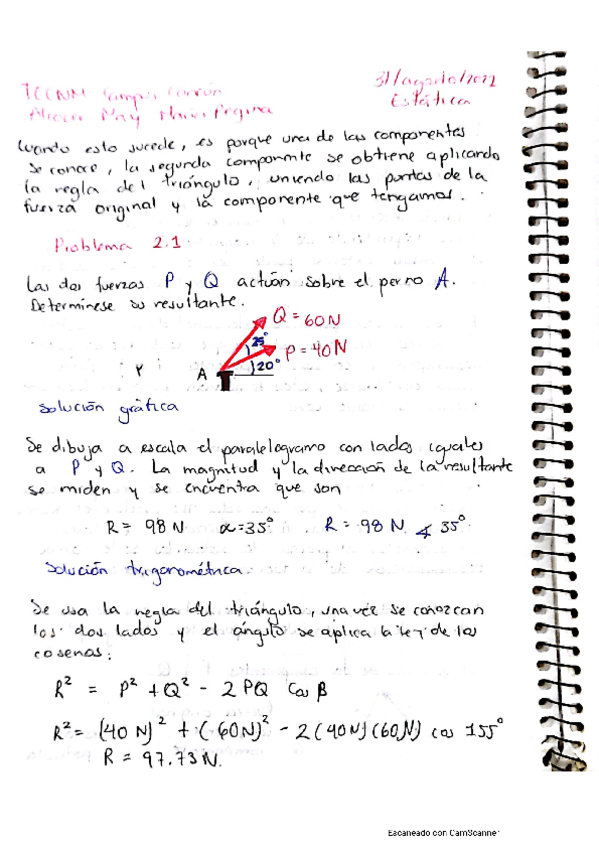 TECNM Campus Cancún
31/agosto/2022
Estática
Cuando esto sucede, es porque una de las componentes
se conoce, la segunda componente se obtiene aplicando
la regla del triángulo, uniendo las puntas de la
fuerza original y la componente que tengamos.
Problema 2.1
Las dos fuerzas P y Q actúan sobre el perno A.
Determínese su resultante.
Q = 60N
25°
P = 40N
A
20°
Solución gráfica
Se dibuja a escala el paralelogramo con lados iguales
a P y Q. La magnitud y la dirección de la resultante
se miden y se encuentra que son
R = 98 N α=35° R = 98 N ∡ 35°
Solución trigonométrica
Se usa la regla del triángulo, una vez se conozcan
los dos lados y el ángulo se aplica la ley de los
cosenos:
R² = P² + Q² - 2PQ Cos β
R² = (40 N)² + (60N)² - 2(40N)(60N) cos 155°
R = 97.73 N.
Escaneado con CamScanner